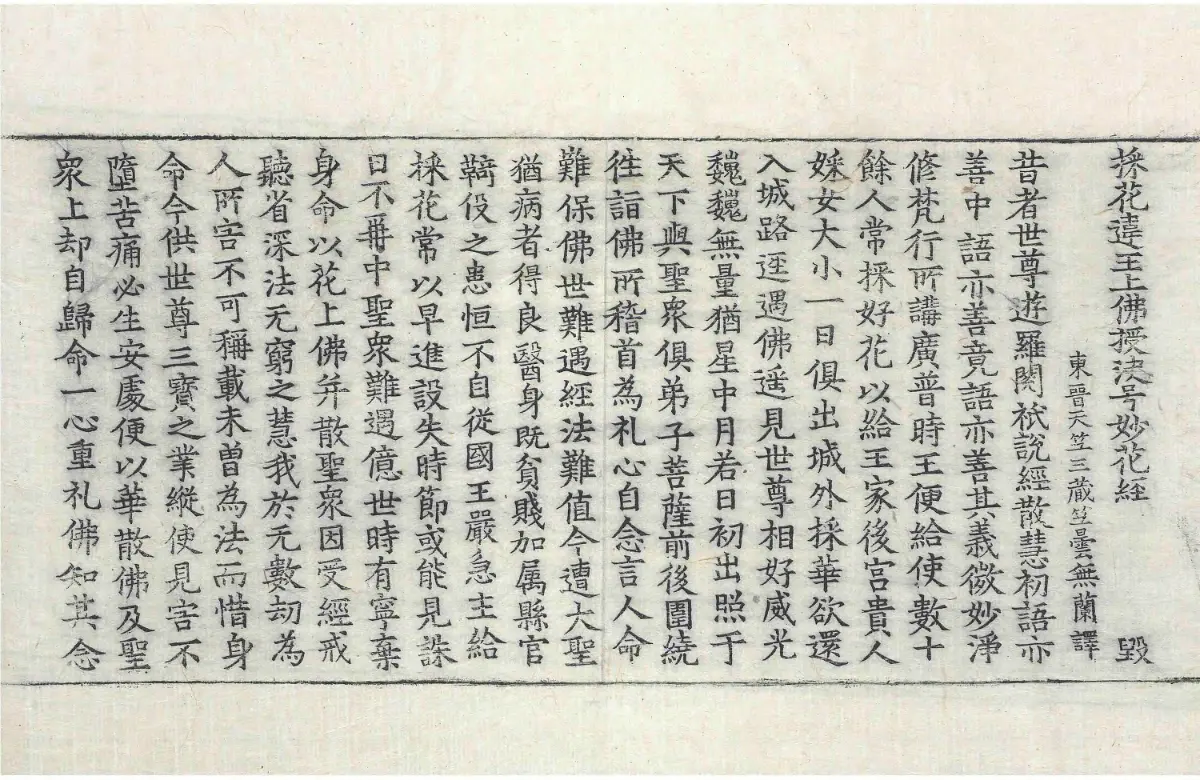 採花違王上佛授决号妙花經 毀
東晉天竺三藏竺曇無蘭譯
昔者世尊遊羅閱祇說經散慧初語亦
善中語亦善竟語亦善其義微妙淨
修梵行所講廣普時王便給使數十
餘人常採好花以給王家後宮貴人
婇女大小一日俱出城外採華欲還
入城路逕遇佛遥見世尊相好威光
魏魏無量猶星中月若日初出照于
天下與聖衆俱弟子菩薩前後圍繞
往詣佛所稽首為礼心自念言人命
難保佛世難遇經法難值今遭大聖
猶病者得良醫身旣貧賤加属縣官
羇伇之患恒不自從國王嚴急主給
採花常以早進設失時節或能見誅
日不再中聖衆難遇億世時有寧棄
身命以花上佛幷散聖衆因受經戒
聽省深法无窮之慧我於无數劫為
人所害不可稱載未曾為法而惜身
命今供世尊三寶之業縱使見害不
墮苦痛必生安處便以華散佛及聖
衆上却自歸命一心重礼佛知其念